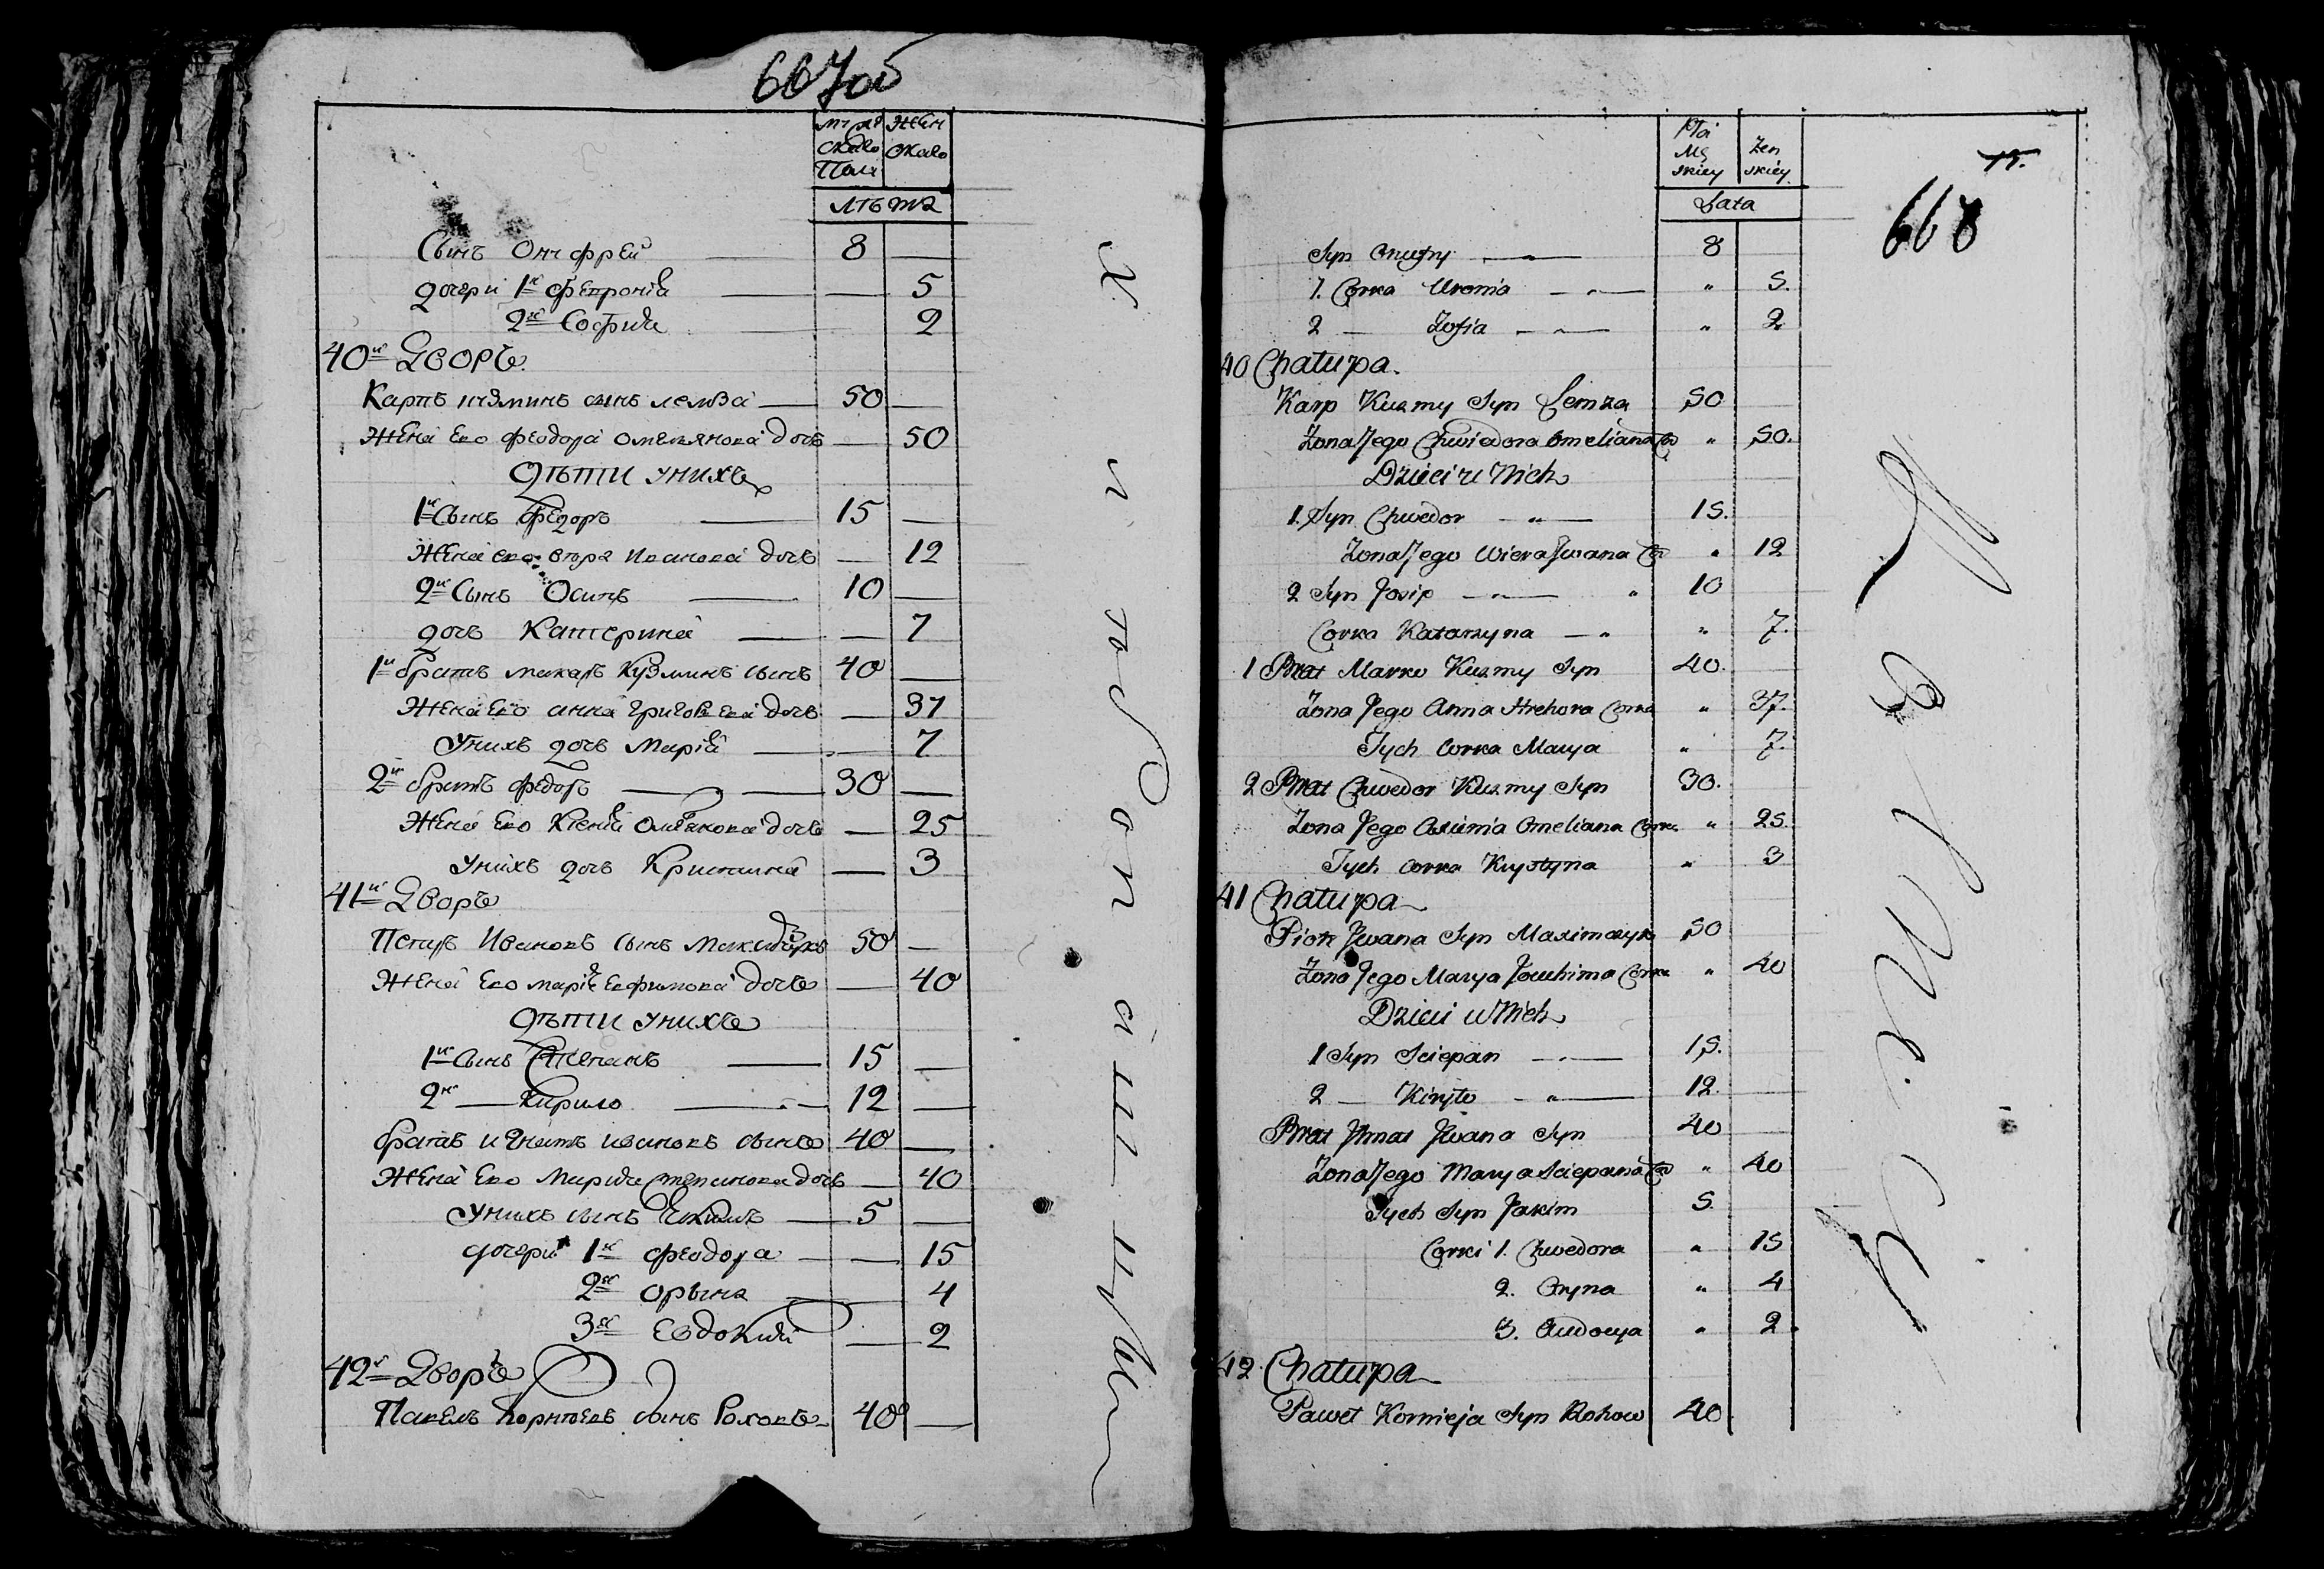 667об
муже
скаго
Пола
Жен
скаго
Лѣта
Сынъ Онуфрей 8 —
дочери 1я Фепронія — 5
2я Софія 2
40й Дворъ
Карпъ Кузминъ сынъ Лемза — 50 —
Жена Его Феодора Омельянова дочь — 50
Дѣти унихъ
1й Сынъ Федоръ — 15 —
Жена его вѣра Иванова дочь — 12
2й Сынъ Осипъ — 10 —
дочь Катерина — — 7
1й братъ макаръ Кузминъ сынъ 40 —
Жена Его анна Григорьева дочь — 37
Унихъ дочь Марія — — 7
2й братъ Федоръ — — 30 —
Жена Его Ксенія Омельянова дочь — 25
унихъ дочь Кристина — 3
41й Дворъ
Петръ Ивановъ сынъ Максимчукъ 50 —
Жена Его марія Ефимова дочь — 40
Дѣти унихъ
1й Сынъ Степанъ — 15 —
2й — Кирило — 12 —
братъ игнатъ ивановъ сынъ 40 —
Жена Его Марія степанова дочь — 40
Унихъ сынъ Екимъ — 5 —
дочери 1я феодора — — 15
2я орына — 4
3я Евдокия — 2
42й Дворъ
Павелъ Корнѣевъ сынъ Роховъ — 40 —
Płci
Mę
skiey
Żen
skiey
Lata
15.
668
Syn Onufry — 8
1. Corka Uronia — " 5.
2 — Zofia — " 2
40 Chałupa.
Karp Kuzmy Syn Lemza 50
Żona Jego Chwiedora Omeliana Co " 50.
Dzieci u Nich
1. Syn Chwedor — " — 15.
Żona Jego Wiera Jwana Co " 12
2 Syn Josip — " — " 10
Corka Katarzyna — " " 7.
1 Brat Marko Kuzmy Syn 40.
Żona Jego Anna Hrehora Corka " 37.
Tych Corka Marya " 7.
2 Brat Chwedor Kuzmy Syn 30.
Żona Jego Axinia Omeliana Corka " 25.
Tych Corka Krystyna " 3
41 Chałupa
Piotr Jwana Syn Maximczyk 50
Żona Jego Marya Jouchima Corka " 40
Dzieci u Nich
1 Syn Sciepan — 15.
2 — Kiryło — " — 12.
Brat Jhnat Jwana Syn 40
Żona Jego Marya Sciepana Co " 40
Tych Syn Jakim 5.
Corki 1. Chwedora " 15
2. Oryna " 4
3. Audocya " 2.
42 Chałupa
Paweł Kornieja Syn Rohow 40